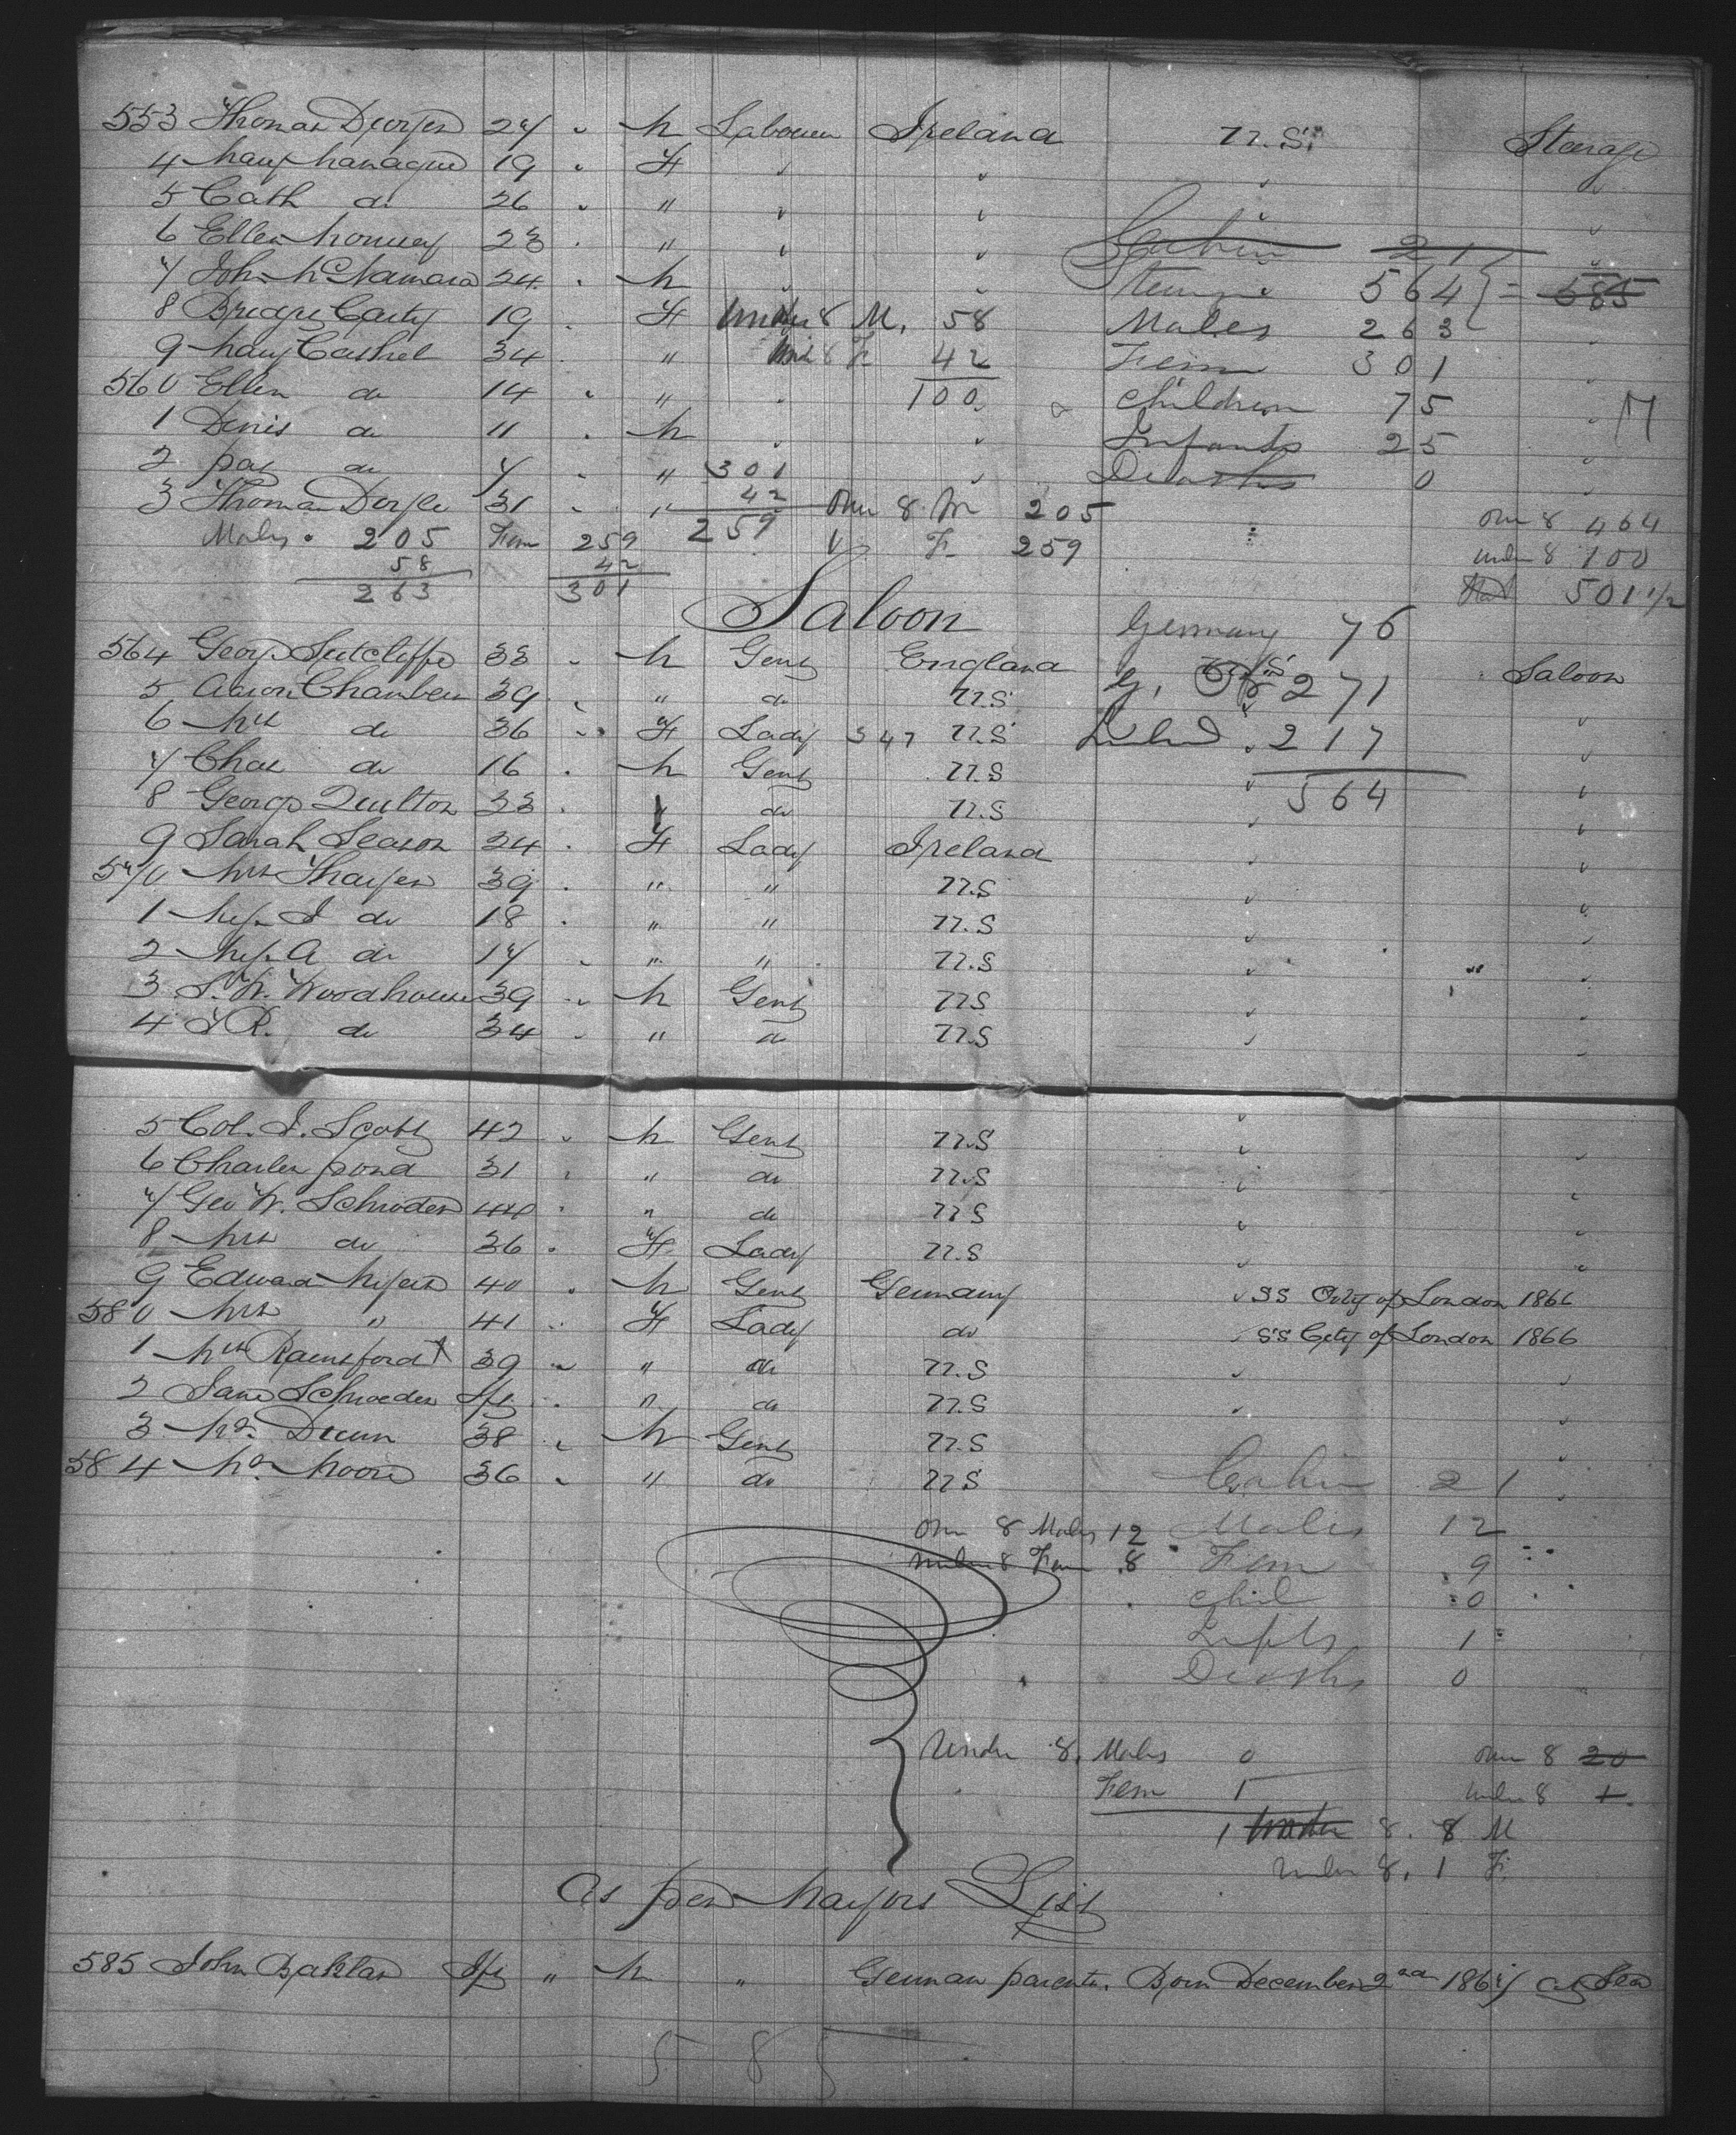 553 Thomas Dwyer 27 " M Labourer Ireland U.S. Steerage
4 Mary Manague 19 " F " "
5 Cath do 26 " " " "
6 Ellen 23 " " " " Cabin 21
7 John McNamara 24 " M " " 564 } = 585
8 Bridget Carty 19 " F Under 8 M. 58 Males 263
9 Mary Cashel 34 " " Und 8 F 42 Fem 301
560 Ellen do 14 " " 100 Children 75
1 Denis do 11 " M " " Infants 25
2 Pat do 7 " " 301 " Deaths 0
3 Thomas Doyle 31 " " 42 Over 8 M 205 Over 8 464
Males 205 Fem 259 259 F 259 under 8 100
58 42 501 1/2
263 301
Saloon
Germany 76
564 George Sutcliffe 33 " M Gent England Saloon
5 Aaron Chambers 39 " " do U.S 271
6 Mrs do 36 " F Lady 347 U.S Ireland 217
7 Chas do 16 " M Gent U.S
8 George Quilton 33 " " do U.S 564
9 Sarah Season 24 " F Lady Ireland
570 Mrs Thayer 39 " " " U.S
1 Miss I do 18 " " " U.S
2 Miss A do 17 " " " U.S
3 S. W. Woodhouse 39 " M Gent U.S
4 J R. do 34 " " do U.S
5 Col. J. Scott 42 " M Gent U.S
6 Charles Pond 31 " " do U.S
7 Geo W. Schroder 44 " " do U.S
8 Mrs do 36 " F Lady U.S
9 Edward Myers 40 " M Gent Germany " SS City of London 1866
580 Mrs " 41 " F Lady do " SS City of London 1866
1 Mrs Rainsford 39 " " do U.S
2 Jane Schroeder Inf " " do U.S
3 Mr. 38 " M Gent U.S
584 Mr. Moore 36 " " do U.S Cabin 21
Over 8 Males 12 Males 12
under 8 Fem 8 Fem 9
Chil 0
Infts 1
Deaths 0
Under 8. Males 0 Over 8 20
Fem 1 under 8 1
1 Under 8. 8 M
under 8. 1 F.
As per Mayors List
585 John Baklar Inf " M " German parents. Born December 2nd 1867 at Sea
585